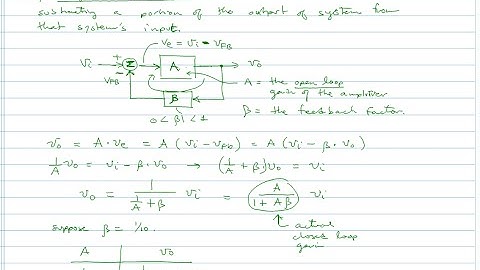 substracting a portion of the output of system from
that system's input.
Ve = Vi - VFB
Vi + Σ A Vo
-
VFB
A = the open loop
gain of the amplifier
β
β = the feedback factor.
0 < β < 1
Vo = A · Ve = A (Vi - VFb) = A (Vi - β · Vo)
1/A Vo = Vi - β · Vo → (1/A + β) Vo = Vi
Vo = 1/(1/A + β) Vi = A/(1 + Aβ) Vi
suppose β = 1/10.
actual
closed loop
gain
A Vo